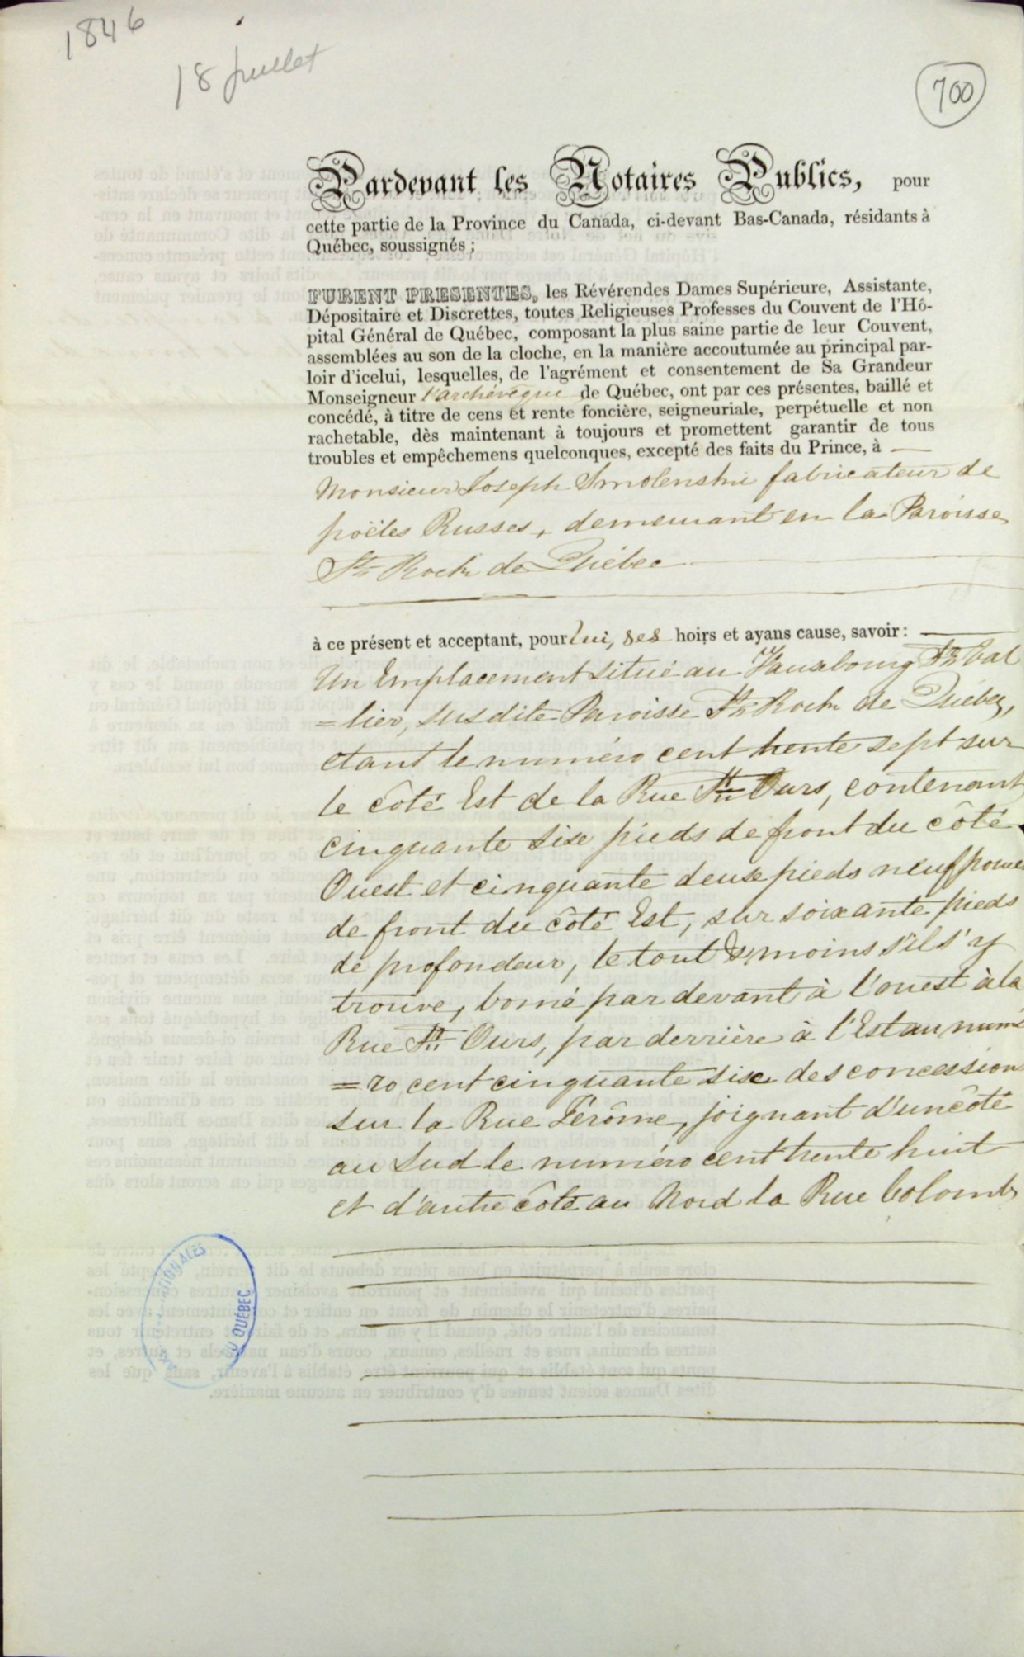 1846
18 juillet
700
Pardevant les Notaires Publics, pour
cette partie de la Province du Canada, ci-devant Bas-Canada, résidants à
Québec, soussignés ;
FURENT PRESENTES, les Révérendes Dames Supérieure, Assistante,
Dépositaire et Discrettes, toutes Religieuses Professes du Couvent de l'Hô-
pital Général de Québec, composant la plus saine partie de leur Couvent,
assemblées au son de la cloche, en la manière accoutumée au principal par-
loir d'icelui, lesquelles, de l'agrément et consentement de Sa Grandeur
Monseigneur l'archévêque de Québec, ont par ces présentes, baillé et
concédé, à titre de cens et rente foncière, seigneuriale, perpétuelle et non
rachetable, dès maintenant à toujours et promettent garantir de tous
troubles et empêchemens quelconques, excepté des faits du Prince, à
Monsieur Joseph Smolenski fabricateur de
poëles Russes, demeurant en la Paroisse
St. Roch de Québec
à ce présent et acceptant, pour lui, ses hoirs et ayans cause, savoir :
Un Emplacement situé au Fauxbourg St. Val
=lier, susdite Paroisse St. Roch de Québec,
etant le numéro cent trente sept sur
le côté Est de la Rue St. Ours, contenant
cinquante six pieds de front du côté
Ouest et cinquante deux pieds neuf pouces
de front du côté Est, sur soixante pieds
de profondeur, le tout moins s'il s'y
trouve, borné par devant à l'ouest à la
Rue St. Ours, par derrière à l'Est au numé
=ro cent cinquante six des concessions
sur la Rue Jérôme, joignant d'un côté
au Sud le numéro cent trente huit
et d'autre côté au Nord la Rue Colomb
DU QUÉBEC